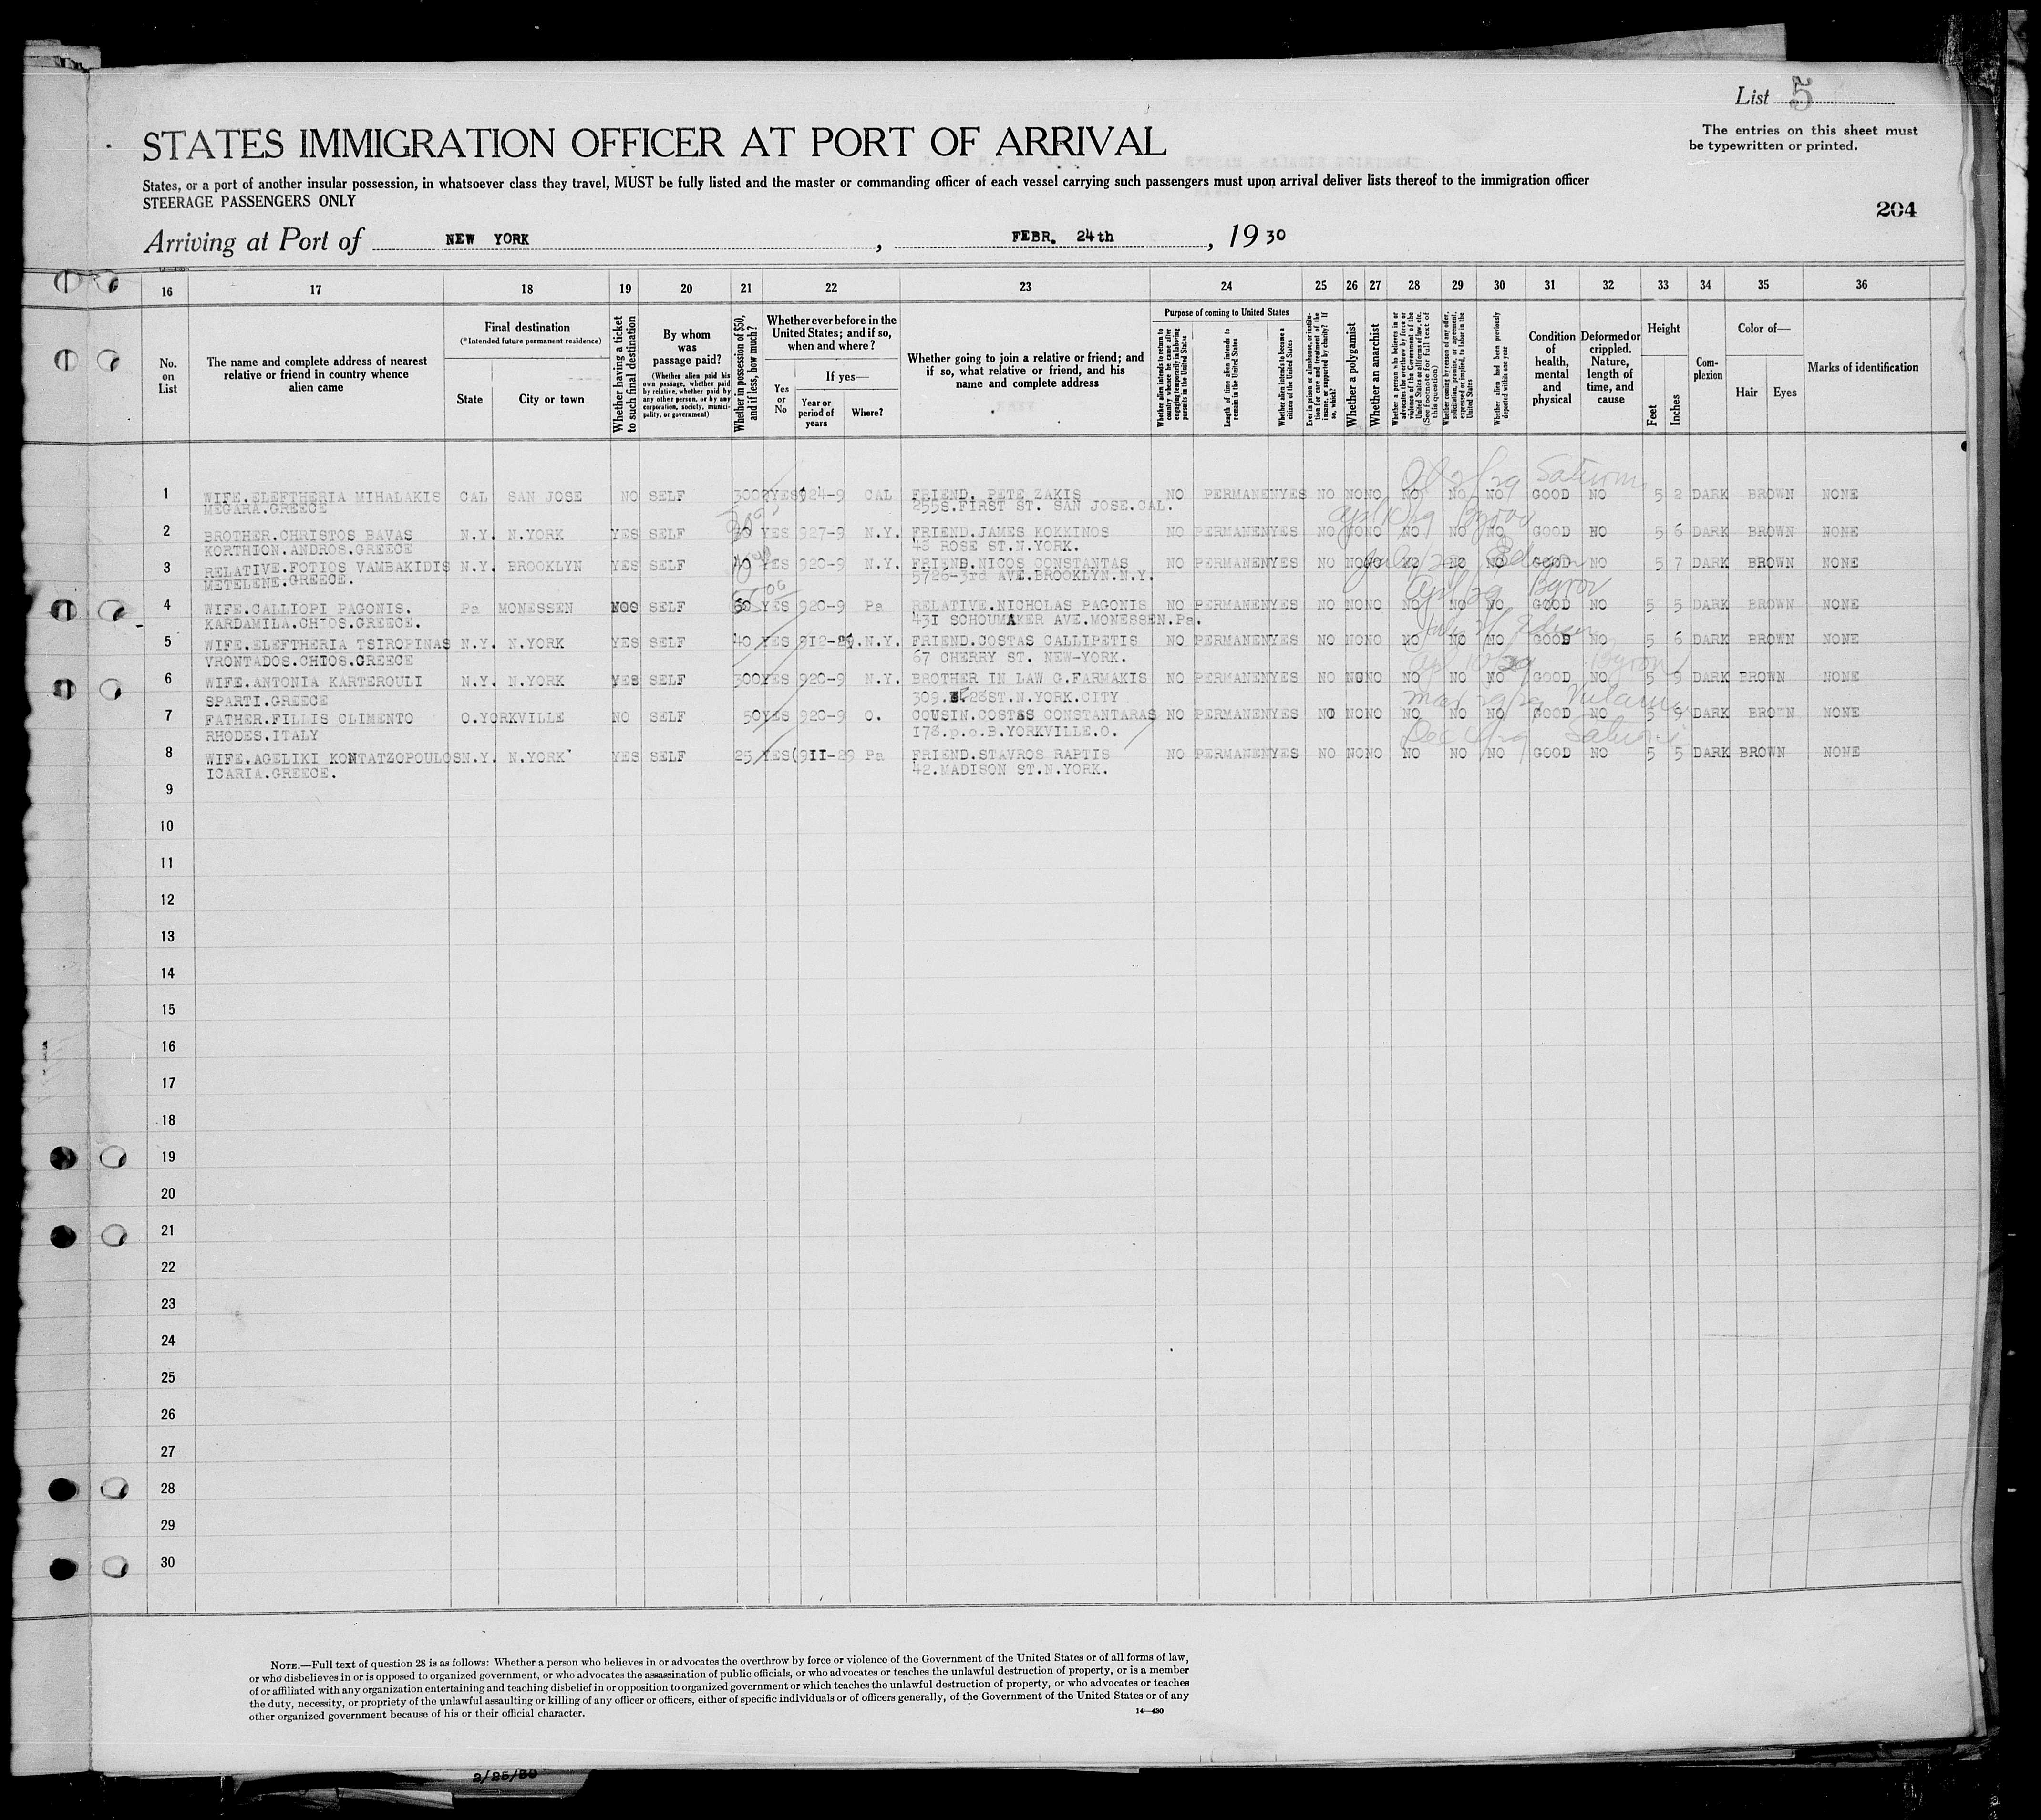 List 5
The entries on this sheet must
be typewritten or printed.
STATES IMMIGRATION OFFICER AT PORT OF ARRIVAL
States, or a port of another insular possession, in whatsoever class they travel, MUST be fully listed and the master or commanding officer of each vessel carrying such passengers must upon arrival deliver lists thereof to the immigration officer
STEERAGE PASSENGERS ONLY
204
Arriving at Port of NEW YORK, FEBR. 24th, 1930
16 17 18 19 20 21 22 23 24 25 26 27 28 29 30 31 32 33 34 35 36
No. on List
The name and complete address of nearest
relative or friend in country whence
alien came
Final destination
(*Intended future permanent residence)
State
City or town
Whether having a ticket
to such final destination
By whom
was
passage paid?
(Whether alien paid his
own passage, whether paid
by relative, whether paid by
any other person, or by any
corporation, society, munici-
pality, or government)
Whether in possession of $50,
and if less, how much?
Whether ever before in the
United States; and if so,
when and where?
Yes
or
No
If yes—
Year or
period of
years
Where?
Whether going to join a relative or friend; and
if so, what relative or friend, and his
name and complete address
Purpose of coming to United States
Whether alien intends to return to
country whence he came after
engaging temporarily in laboring
pursuits in the United States
Length of time alien intends to
remain in the United States
Whether alien intends to become a
citizen of the United States
Ever in prison or almshouse, or institu-
tion for care and treatment of the
insane, or supported by charity? If
so, which?
Whether a polygamist
Whether an anarchist
Whether a person who believes in or
advocates the overthrow by force or
violence of the Government of the
United States or all forms of law, etc.
(See footnote for full text of
this question)
Whether coming by reason of any offer,
solicitation, promise, or agreement,
expressed or implied, to labor in the
United States
Whether alien had been previously
deported within one year
Condition
of
health,
mental
and
physical
Deformed or
crippled.
Nature,
length of
time, and
cause
Height
Feet
Inches
Com-
plexion
Color of—
Hair
Eyes
Marks of identification
1 WIFE.ELEFTHERIA MIHALAKIS CAL SAN JOSE NO SELF 300 YES 924-9 CAL FRIEND. PETE ZAKIS NO PERMANENYES NO NO NO NO NO NO GOOD NO 5 2 DARK BROWN NONE
MEGARA.GREECE 255S.FIRST ST. SAN JOSE.CAL.
2 BROTHER.CHRISTOS BAVAS N.Y. N.YORK YES SELF 30 YES 927-9 N.Y. FRIEND.JAMES KOKKINOS NO PERMANENYES NO NO NO NO NO NO GOOD NO 5 6 DARK BROWN NONE
KORTHION.ANDROS.GREECE 48 ROSE ST.N.YORK.
3 RELATIVE.FOTIOS VAMBAKIDIS N.Y. BROOKLYN YES SELF 40 YES 920-9 N.Y. FRIEND.NICOS CONSTANTAS NO PERMANENYES NO NO NO NO NO NO GOOD NO 5 7 DARK BROWN NONE
METELENE.GREECE. 5726-3rd AVE.BROOKLYN.N.Y.
4 WIFE.CALLIOPI PAGONIS. Pa MONESSEN SELF 60 YES 920-9 Pa RELATIVE.NICHOLAS PAGONIS NO PERMANENYES NO NO NO NO NO NO GOOD NO 5 5 DARK BROWN NONE
KARDAMILA.CHIOS.GREECE. 431 SCHOUMAKER AVE.MONESSEN.Pa.
5 WIFE.ELEFTHERIA TSIROPINAS N.Y. N.YORK YES SELF 40 YES 912-29.N.Y. FRIEND.COSTAS CALLIPETIS NO PERMANENYES NO NO NO NO NO NO GOOD NO 5 6 DARK BROWN NONE
VRONTADOS.CHIOS.GREECE 67 CHERRY ST. NEW-YORK.
6 WIFE.ANTONIA KARTEROULI N.Y. N.YORK YES SELF 300YES 920-9 N.Y. BROTHER IN LAW G.FARMAKIS NO PERMANENYES NO NO NO NO NO NO GOOD NO 5 9 DARK BROWN NONE
SPARTI.GREECE 309.E.28ST.N.YORK.CITY
7 FATHER.FILLIS CLIMENTO O.YORKVILLE NO SELF 50YES 920-9 O. COUSIN.COSTAS CONSTANTARAS NO PERMANENYES NO NO NO NO NO NO GOOD NO 5 9 DARK BROWN NONE
RHODES.ITALY 178.p.o.B.YORKVILLE.O.
8 WIFE.AGELIKI KONTATZOPOULOS N.Y. N.YORK YES SELF 25 YES(911-29 Pa FRIEND.STAVROS RAPTIS NO PERMANENYES NO NO NO NO NO NO GOOD NO 5 5 DARK BROWN NONE
ICARIA.GREECE. 42.MADISON ST.N.YORK.
9
10
11
12
13
14
15
16
17
18
19
20
21
22
23
24
25
26
27
28
29
30
NOTE.—Full text of question 28 is as follows: Whether a person who believes in or advocates the overthrow by force or violence of the Government of the United States or of all forms of law,
or who disbelieves in or is opposed to organized government, or who advocates the assassination of public officials, or who advocates or teaches the unlawful destruction of property, or is a member
of or affiliated with any organization entertaining and teaching disbelief in or opposition to organized government or which teaches the unlawful destruction of property, or who advocates or teaches
the duty, necessity, or propriety of the unlawful assaulting or killing of any officer or officers, either of specific individuals or of officers generally, of the Government of the United States or of any
other organized government because of his or their official character.
14—430
2/25/30